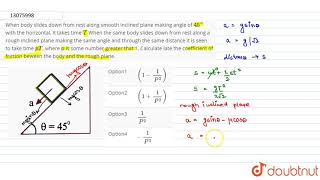 13075998
When body slides down from rest along smooth inclined plane making angle of 45°
with the horizontal, it takes time T. When the same body slides down from rest along a
rough inclined plane making the same angle and through the same distance it is seen
to take time pT, where p is some number greater that 1. Calculate late the coefficient of
friction between the body and the rough plane.
Option1 (1 − 1/p²)
Option2 (1 + 1/p²)
Option3 1/p²
Option4 − 1/p²
θ = 45°
a
mg
a = gsinθ
a = g/√2
distance → s
s = ut + ½at²
s = gT²/2√2
rough inclined plane
a = gsinθ − μcosθ
a =
doubtnut